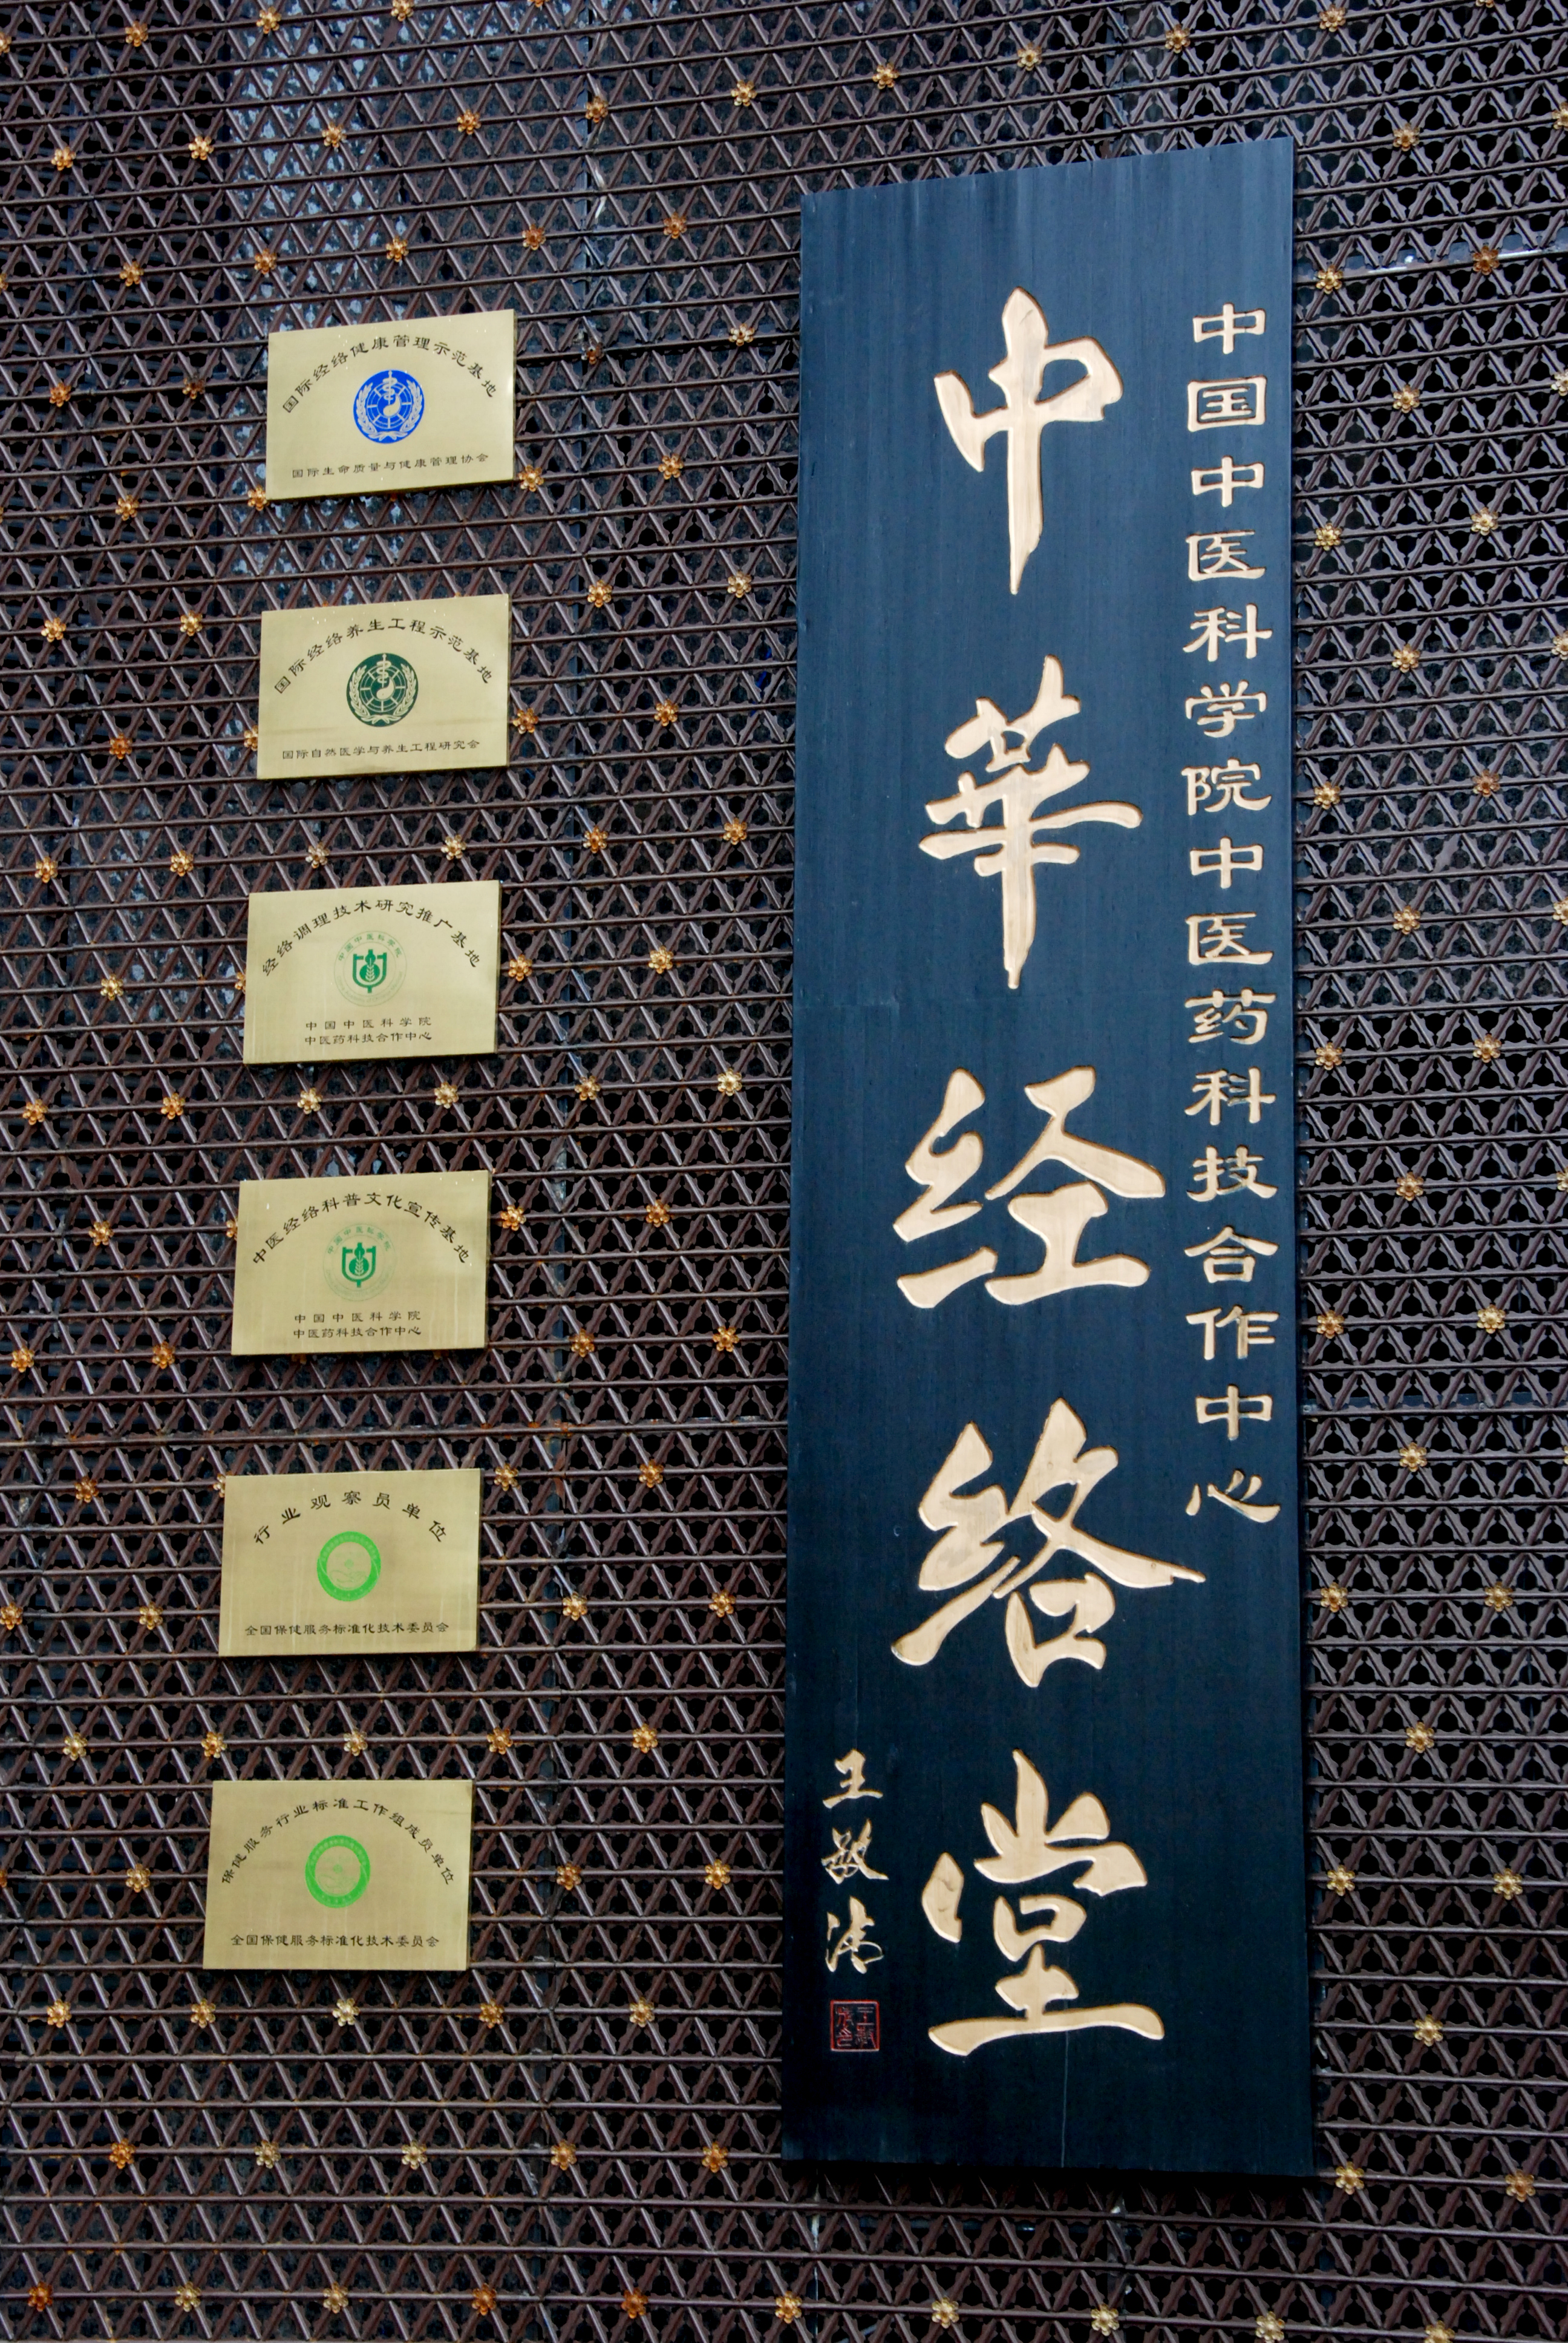 中国中医科学院中医药科技合作中心
中華经络堂
王敏清
国际经络健康管理示范基地
国际生命质量与健康管理协会
国际经络养生工程示范基地
国际自然医学与养生工程研究会
经络调理技术研究推广基地
中国中医科学院
中国中医科学院
中医药科技合作中心
中医经络科普文化宣传基地
中国中医科学院
中国中医科学院
中医药科技合作中心
行业观察员单位
全国保健服务标准化技术委员会
保健服务行业标准工作组成员单位
全国保健服务标准化技术委员会